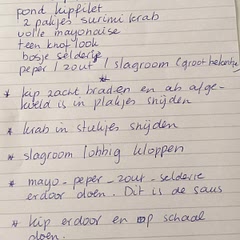 pond kipfilet
2 pakjes surimi krab
volle mayonaise
teen knoflook
bosje selderie
peper / zout / slagroom (groot bekertje
* kip zacht braden en als afge-
koeld is in plakjes snijden
* krab in stukjes snijden
* slagroom lobbig kloppen
* mayo - peper - zout - selderie
erdoor doen. Dit is de saus
* kip erdoor en op schaal
doen.